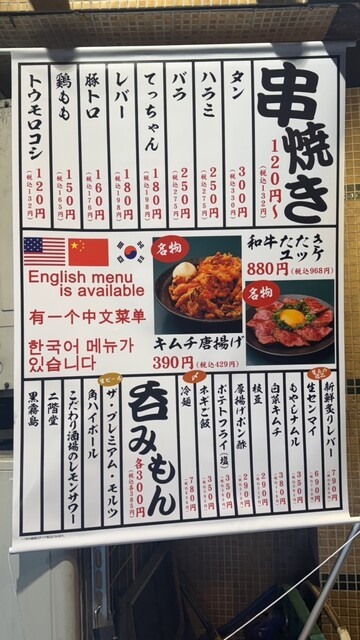 串焼き
120円～
(税込132円)
タン
300円
(税込330円)
ハラミ
250円
(税込275円)
バラ
250円
(税込275円)
てっちゃん
180円
(税込198円)
レバー
180円
(税込198円)
豚トロ
160円
(税込176円)
鶏もも
150円
(税込165円)
トウモロコシ
120円
(税込132円)
English menu
is available
有一个中文菜单
한국어 메뉴가
있습니다
名物
キムチ唐揚げ
390円(税込429円)
和牛たたき
ユッケ
880円(税込968円)
名物
新鮮炙りレバー
790円
生センマイ
690円
もやしナムル
350円
白菜キムチ
380円
枝豆
290円
厚揚げポン酢
290円
ポテトフライ(塩)
350円
ネギご飯
350円
〆
冷麺
780円
呑みもん
各300円
(税込各385円)
生ビール
ザ・プレミアム・モルツ
角ハイボール
こだわり酒場のレモンサワー
二階堂
黒霧島